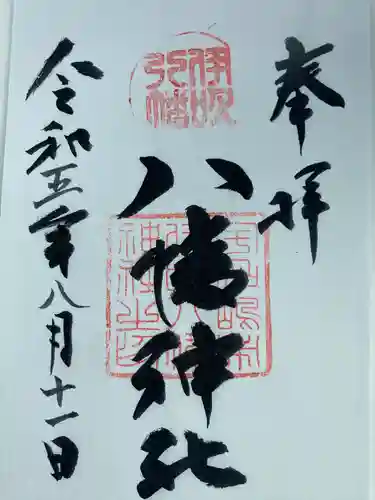 奉拝
八幡神社
令和五年八月十一日